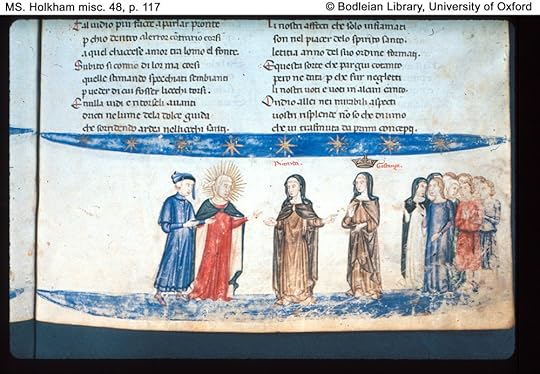 MS. Holkham misc. 48, p. 117
© Bodleian Library, University of Oxford
uidio piu facce a parlar pronte
p chio dentro alerror cōtrario corsi
a quel chaccese amor tra lomo el fonte.
Subito si comio di lor macorsi
quelle stimando specchiati sembianti
p ueder di cui fosser liocchi torsi.
E nulla uidi e ritorseli auanti
dritti nel lume dela dolce guida
che sorridendo ardea nelliocchi santi.
Li nostri affecti che solo infiamati
son nel piacer delo spirito santo.
letitia anno del suo ordine formati
E questa sorte che par giu cotanto
pero ne data p che fur neglecti
li nostri uoti e uoti in alcun canto.
Ondio allei ne mirabili aspecti
uostri risplende nō so che diuino
che ui trasmuta da primi concepti.